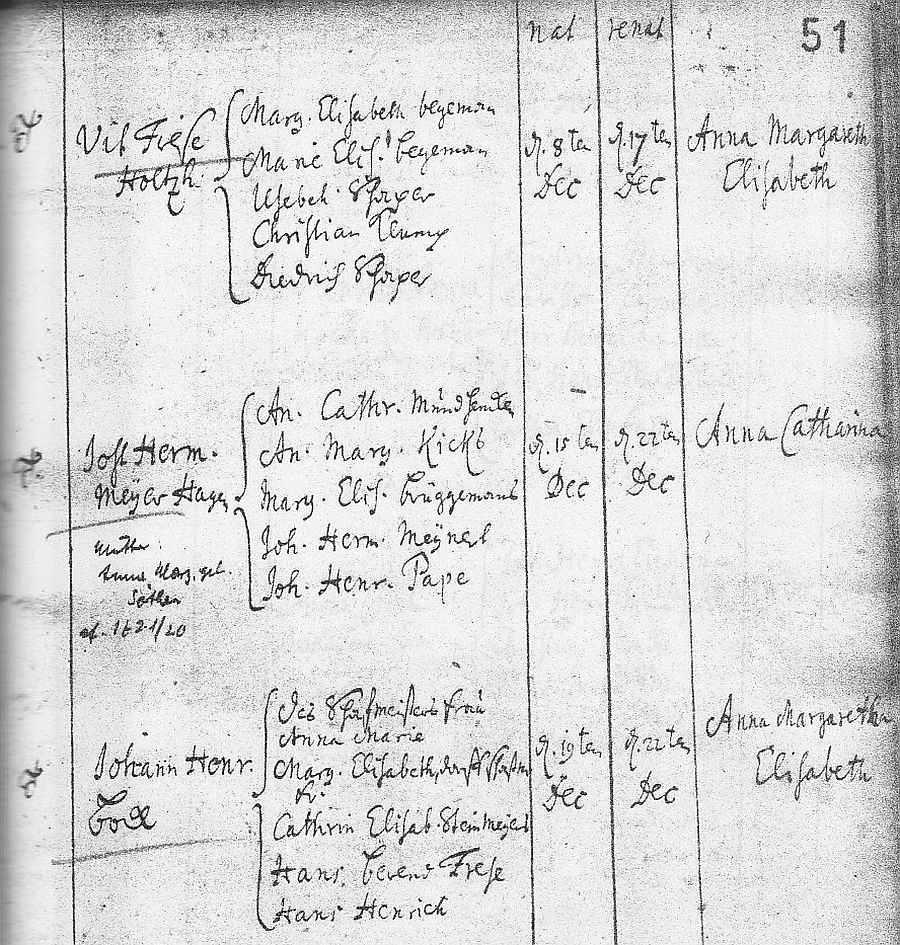 nat renat 51
Vit Friese
Holtzh.
Marg. Elisabeth begeman
Marie Elis. begeman
Ilsebeh. Schaper
Christian
Diedrich Schaper
d. 8ten
Dec
d. 17ten
Dec
Anna Margareth
Elisabeth
Jost Herm.
Meÿer Hagen
Mutter
Anna Marg. geb.
An. Cathr.
An. Marg. Kicks
Marg. Elis. brüggemans
Joh. Herm. Meÿnert
Joh. Henr. Pape
d. 15ten
Dec
d. 22ten
Dec
Anna Catharina
Johann Henr.
Bock
Des Schafmeisters frau
Anna Marie
Marg. Elisabeth
Cathrin Elisab. Steinmeyers
Hans berend Frese
Hans Henrich
d. 19ten
Dec
d. 22ten
Dec
Anna Margaretha
Elisabeth